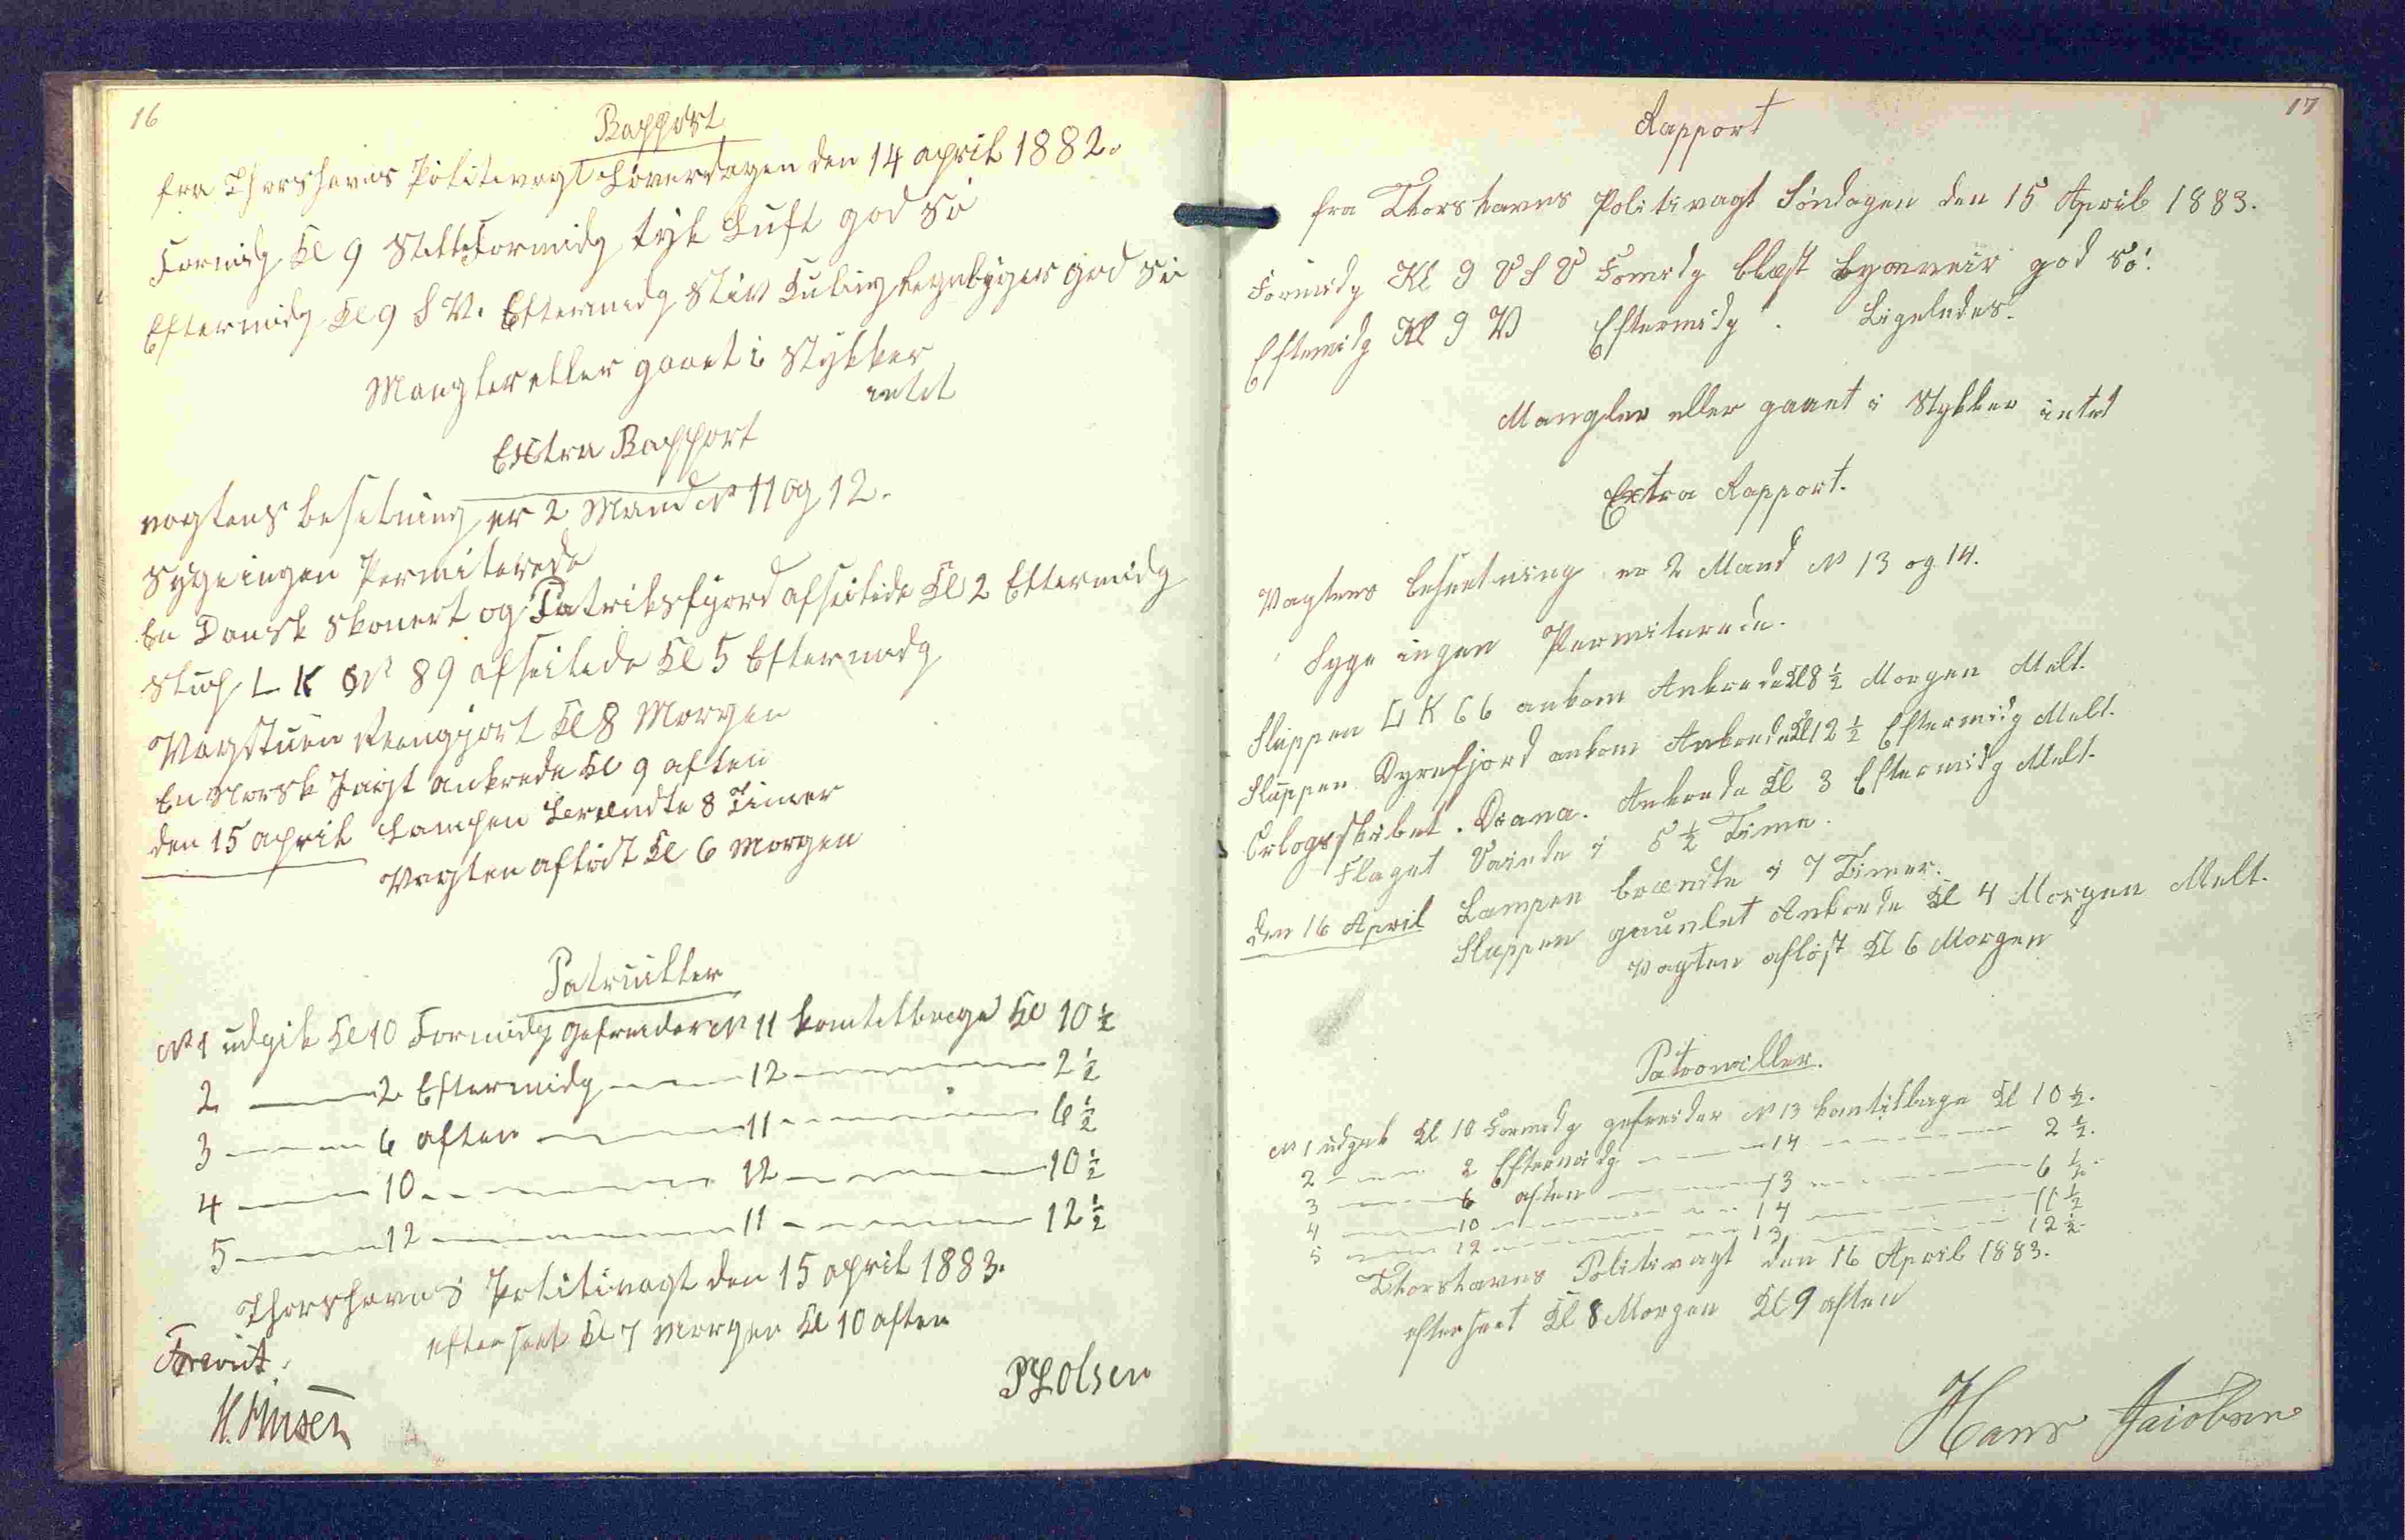 16
Rapport
fra Thorshavns Politivagt Löverdagen den 14 april 1882.
Formidg Kl 9 Stille Formidg tyk Luft god Sö
Eftermidg Kl 9 S V. Eftermidg Stiv Kuling Regnbyger god Sö
Mangler eller gaaet i Stykker
intet
Extra Rapport
vagtens besetning er 2 Mand No 11 og 12.
Syge ingen Permiterede
En Dansk Skonert og Patriksfjord afseilede Kl 2 Eftermidg
Slup L K No 89 afseilede Kl 5 Eftermidg
Vagstuen Reengjort Kl 8 Morgen
En Norsk Jagt ankrede Kl 9 aften
den 15 april Lampen Brændte 8 Timer
Vagten aflöst Kl 6 Morgen
Patruiller
No 1 udgik Kl 10 Formidg gefreider No 11 kom tilbage Kl 10 ½
2 — 2 Eftermidg — 12 — 2 ½
3 — 6 aften — 11 — 6 ½
4 — 10 — 12 — 10 ½
5 — 12 — 11 — 12 ½
Thorshavns Politivagt den 15 april 1883.
efterseet Kl 7 Morgen Kl 10 aften
Forevist.
P Olsen
17
Rapport
fra Thorshavns Politivagt Söndagen den 15 April 1883.
Formidg Kl 9 V S V Formidg blæst Byeveir god Sö.
Eftermidg Kl 9 V Eftermidg . Ligeledes.
Mangler eller gaaet i Stykker intet
Extra Rapport.
Vagtens besætning er 2 Mand No 13 og 14.
Syge ingen Permiterede.
Sluppen L K 66 ankom Ankrede Kl 8 ½ Morgen Melt.
Sluppen Dyrefjord ankom Ankrede Kl 12 ½ Eftermidg Melt.
Orlogsskibet . Diana . Ankrede Kl 3 Eftermidg Melt.
Flaget Vaiede i 5 ½ Time.
den 16 April Lampen brændte i 7 Timer.
Sluppen gauntlet Ankrede Kl 4 Morgen Melt.
Vagten aflöst Kl 6 Morgen
Patrouiller.
No 1 udgik Kl 10 Formidg gefreider No 13 kom tilbage Kl 10 ½.
2 — 2 Eftermidg — 14 — 2 ½.
3 — 6 aften — 13 — 6 ½.
4 — 10 — 14 — 11 ½
5 — 12 — 13 — 12 ½.
Thorshavns Politivagt den 16 April 1883.
efterseet Kl 8 Morgen Kl 9 aften
Hans Jacobsen